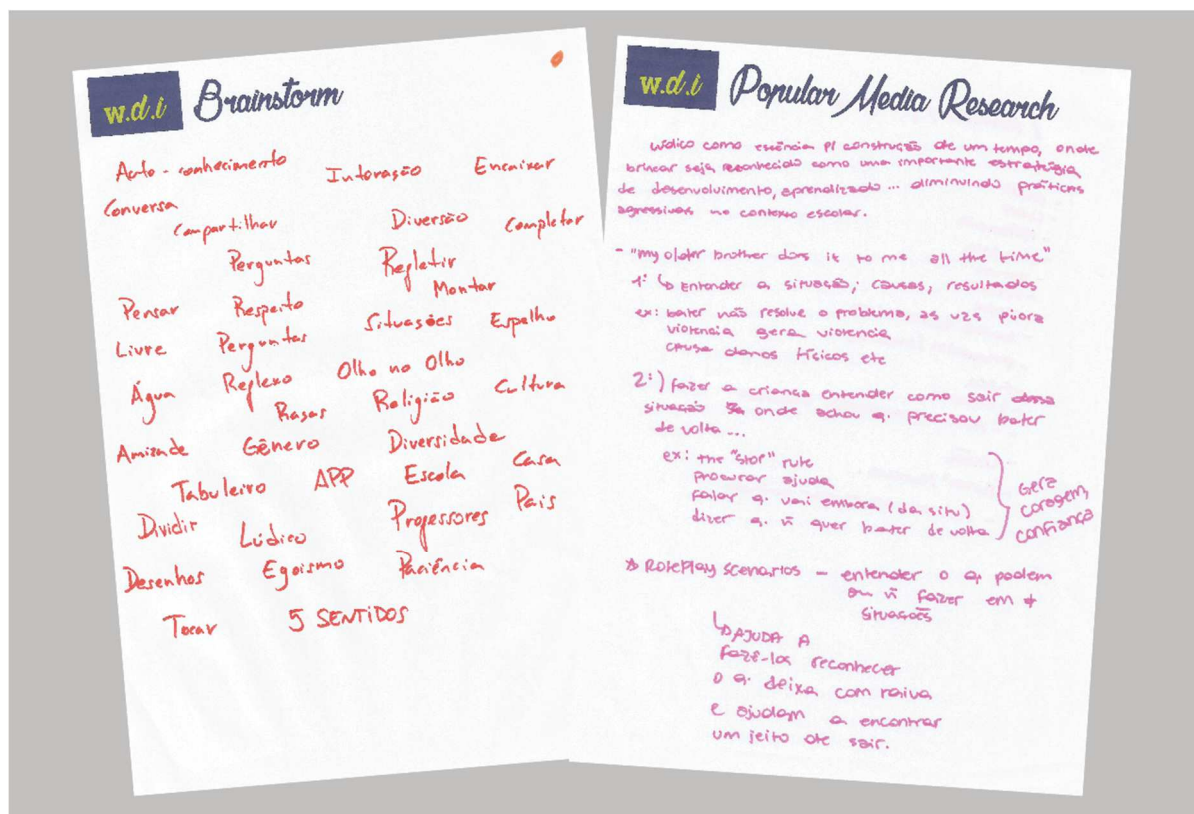 w.d.i Brainstorm
Auto-conhecimento Interação Encaixar
Conversa
Compartilhar Diversão Completar
Perguntas Refletir
Montar
Pensar Respeito
Livre Perguntas Situações Espelho
Água Reflexo Olho no Olho
Raças Religião Cultura
Amizade Gênero Diversidade
Tabuleiro APP Escola Casa
Dividir Lúdico Professores Pais
Desenhos Egoísmo Paciência
Tocar 5 SENTIDOS
w.d.i Popular Media Research
lúdico como essência p/ construção de um tempo, onde
brincar seja reconhecido como uma importante estratégia
de desenvolvimento, aprendizado ... diminuindo práticas
agressivas no contexto escolar.
- "my older brother does it to me all the time"
1: ↳ Entender a situação; causas, resultados
ex: bater não resolve o problema, as vzs piora
violencia gera violencia
causa danos físicos etc
2:) fazer a criança entender como sair dessa
situação onde achou q. precisou bater
de volta ...
ex: the "stop" rule
procurar ajuda
falar q. vai embora (da situ)
dizer q. ñ quer bater de volta
Gera
coragem,
confiança
☆ RolePlay scenarios – entender o q. podem
ou ñ fazer em ≠
situações
↳ AJUDA A
fazê-los reconhecer
o q. deixa com raiva
e ajudam a encontrar
um jeito de sair.